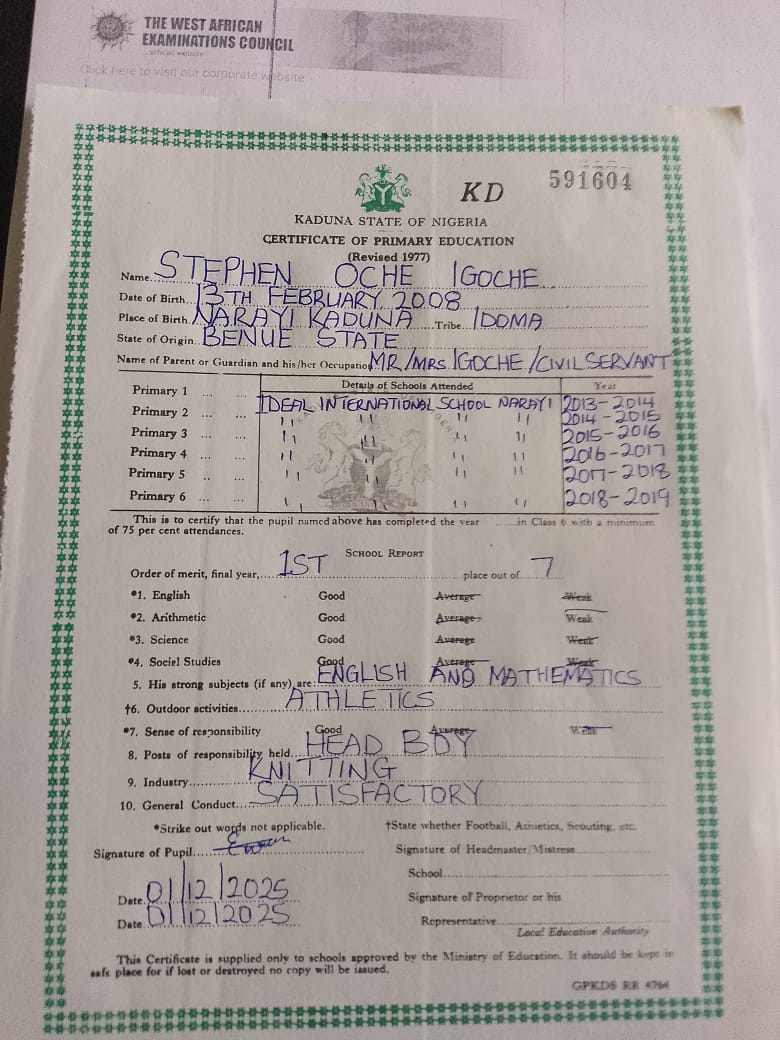 THE WEST AFRICAN
EXAMINATIONS COUNCIL
official website
Click here to visit our corporate website
KD 591604
KADUNA STATE OF NIGERIA
CERTIFICATE OF PRIMARY EDUCATION
(Revised 1977)
Name. STEPHEN OCHE IGOCHE
Date of Birth. 13TH FEBRUARY, 2008
Place of Birth. NARAYI KADUNA Tribe IDOMA
State of Origin. BENUE STATE
Name of Parent or Guardian and his/her Occupation MR/MRS IGOCHE /CIVIL SERVANT
Details of Schools Attended Year
Primary 1 ... ... IDEAL INTERNATIONAL SCHOOL NARAYI 2013-2014
Primary 2 ... ... " " " " 2014-2015
Primary 3 ... ... " " " " 2015-2016
Primary 4 ... ... " " " " 2016-2017
Primary 5 .. ... " " " " 2017-2018
Primary 6 ... ... " " " " 2018-2019
This is to certify that the pupil named above has completed the year ......in Class 6 with a minimum
of 75 per cent attendances.
SCHOOL REPORT
Order of merit, final year, 1ST place out of 7
*1. English Good Average Weak
*2. Arithmetic Good Average Weak
*3. Science Good Average Weak
*4. Sociel Studies Good Average Weak
5. His strong subjects (if any) are ENGLISH AND MATHEMATICS
†6. Outdoor activities. ATHLETICS
*7. Sense of responsibility Good Average Weak
8. Posts of responsibility held. HEAD BOY
9. Industry. KNITTING
10. General Conduct. SATISFACTORY
*Strike out words not applicable. †State whether Football, Athletics, Scouting, etc.
Signature of Pupil. Signature of Headmaster/Mistress
School
Date. 01/12/2025 Signature of Proprietor or his
Date 01/12/2025 Representative
Local Education Authority
This Certificate is supplied only to schools approved by the Ministry of Education. It should be kept in
safe place for if lost or destroyed no copy will be issued.
GPKDS RR 4764